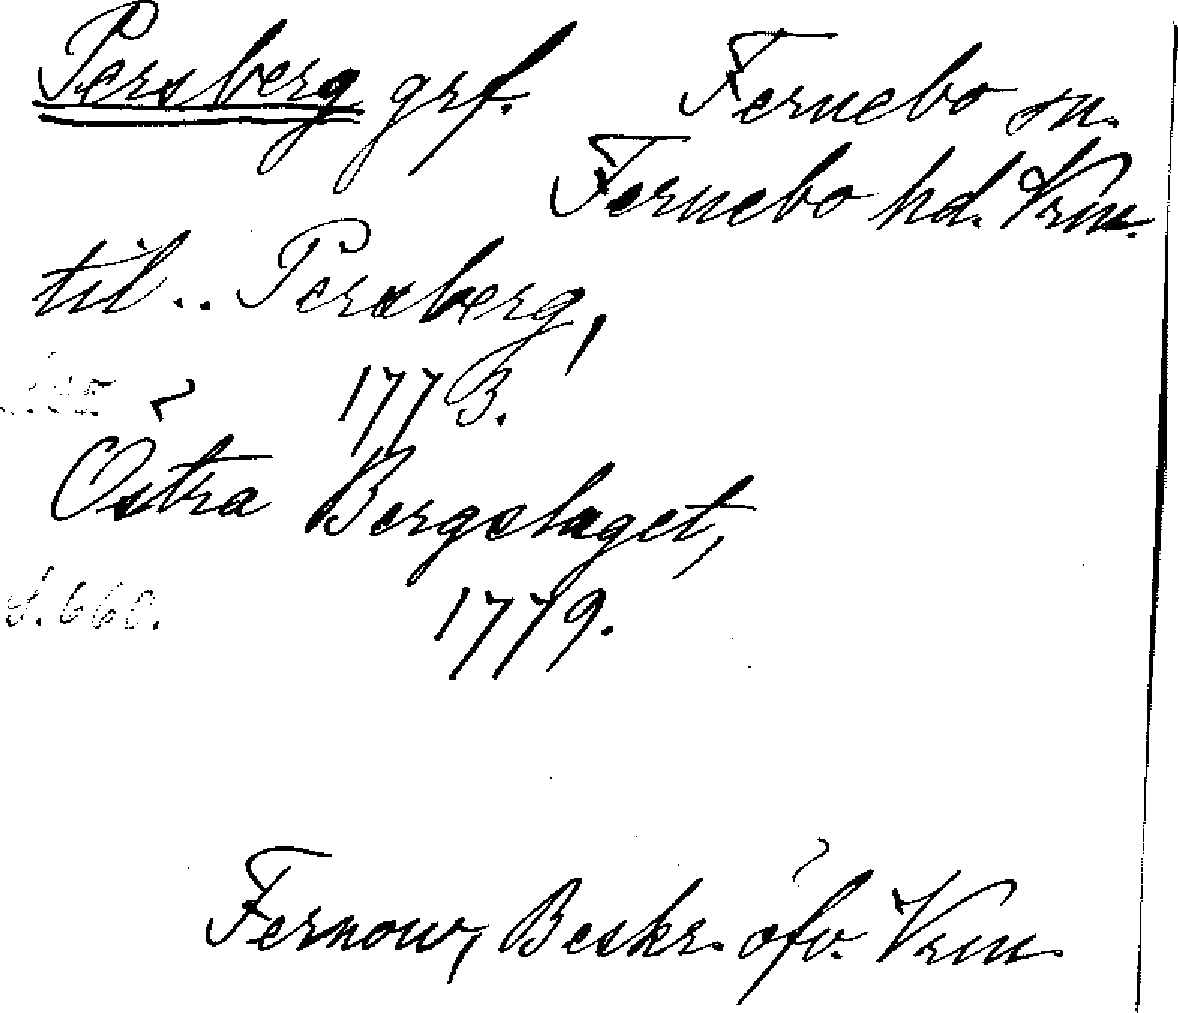 Persberg grf. Fernebo sn.
Fernebo hd. Vrm.
til.. Persberg,
1773.
Östra Bergslaget,
S. 660. 1779.
Fernow, Beskr. öfv. Vrm.